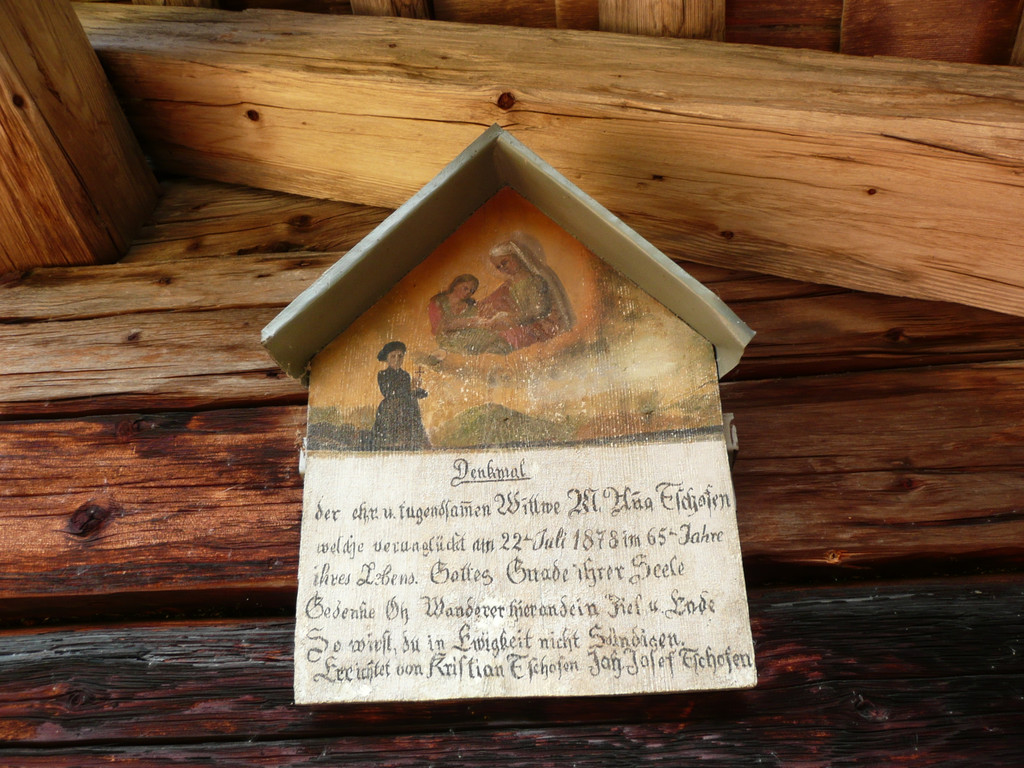 Denkmal
der ehr. u. tugendsam̄en Wittwe M. An̄a Tschofen
welche verunglückt am 22ten Juli 1878 im 65ten Jahre
ihres Lebens. Gottes Gnade ihrer Seele
Gedenke Oh Wanderer hier an dein Ziel u. Ende
So wirst, du in Ewigkeit nicht Sündigen.
Errichtet von Kristian Tschofen Joh. Josef Tschofen